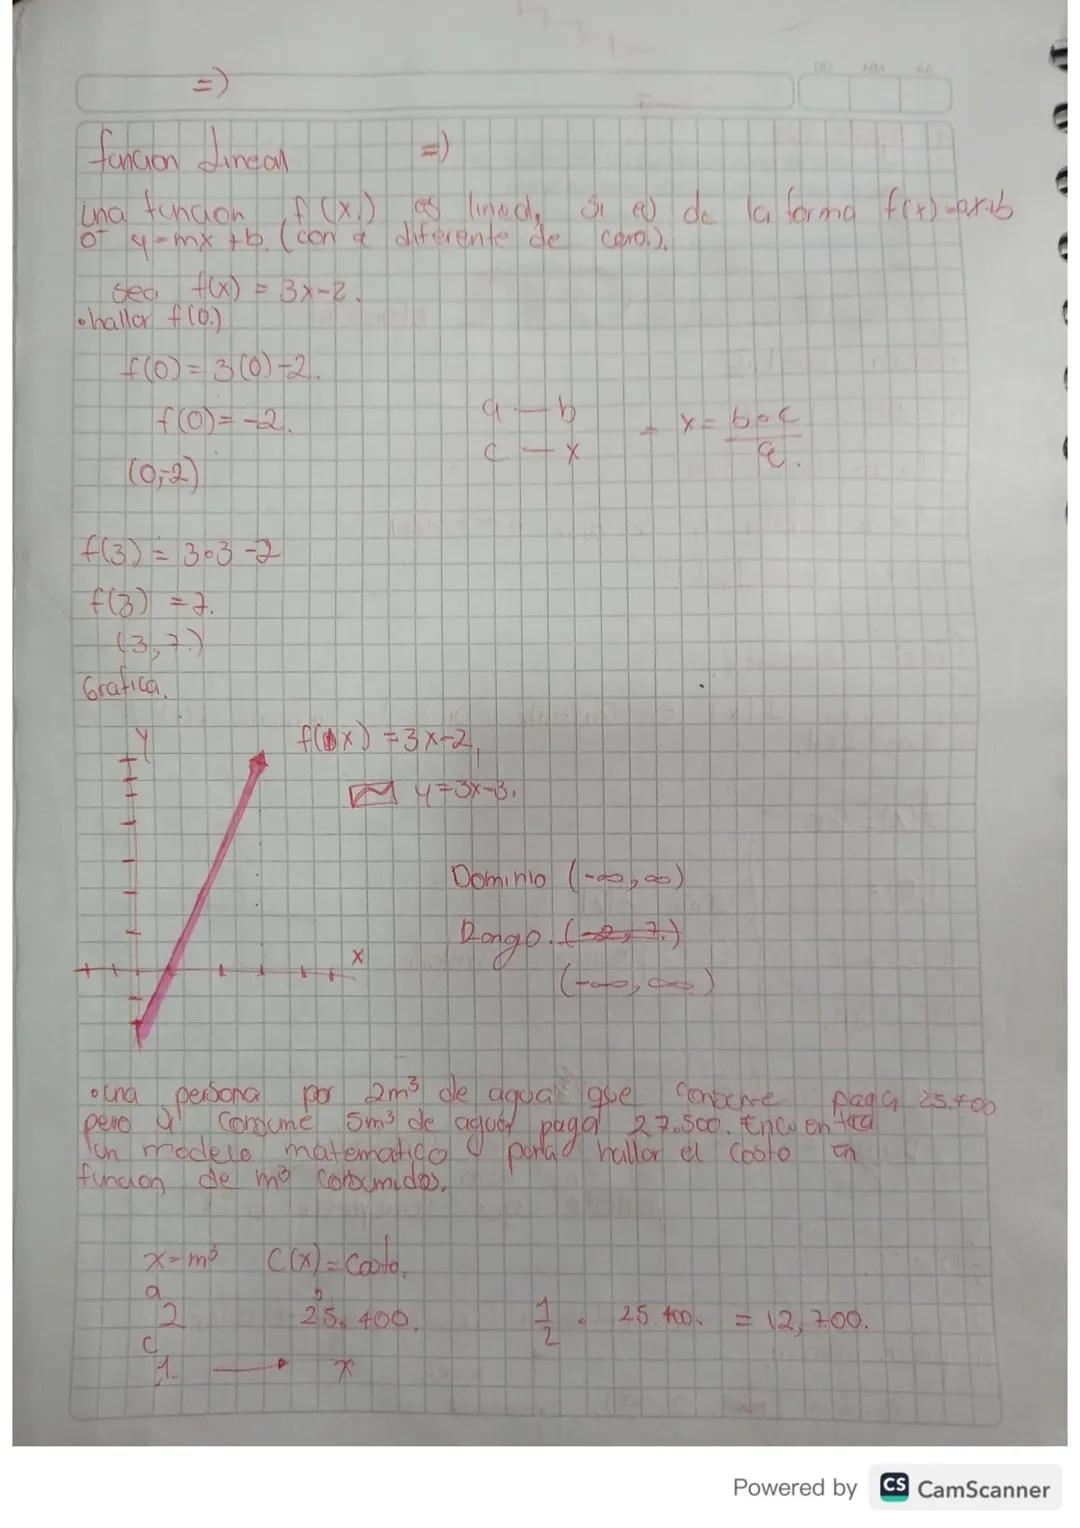 =)
DD MM AA
funcion Lineal =)
una funcion f(x) es lineal, si es de la forma f(x)=ax+b
o y=mx+b. (con a diferente de cero.).
sea f(x) = 3x-2.
• hallar f(0.)
f(0) = 3(0)-2.
f(0) = -2.
(0,-2)
a — b
c — x
= x = b•c
a.
f(3) = 3•3-2
f(3) = 7.
(3,7.)
Grafica.
Y
f(x) = 3x-2,
y=3x-3.
Dominio (-∞,∞)
Rango. (-2, 7.)
X
(-∞, ∞)
• una persona por 2m³ de agua que consume paga 25.400
pero si consume 5m³ de agua paga 27.500. Encuentra
un modelo matematico para hallar el costo en
funcion de m³ consumidos.
x=m³ C(x)=Costo.
a b
2 25.400. 1/2 • 25.400. = 12,700.
c
1 → x
Powered by CS CamScanner